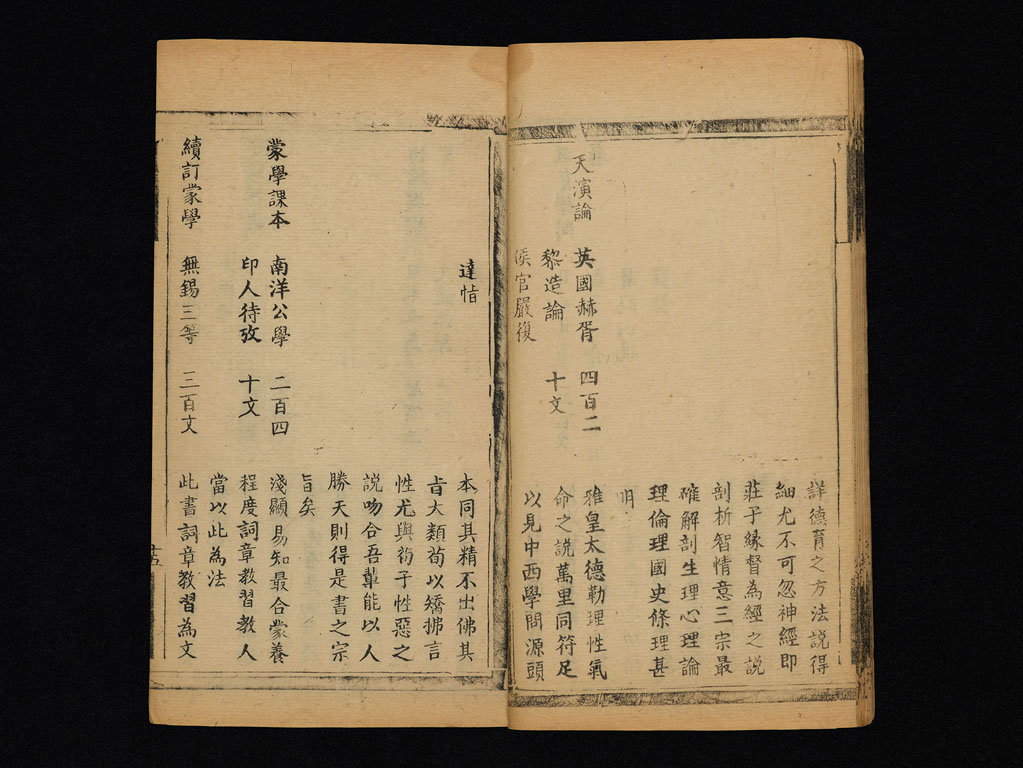 詳德育之方法說得
細尤不可忽神經即
莊子緣督為經之說
剖析智情意三宗最
確解剖生理心理論
理倫理國史條理甚
明
天演論 英國赫胥 四百二 雅皇太德勒理性氣
黎造論 十文 命之說萬里同符足
侯官嚴復 以見中西學問源頭
達恉 本同其精不出佛其
旨大類荀以矯拂言
性尤與荀子性惡之
說吻合吾輩能以人
勝天則得是書之宗
旨矣
蒙學課本 南洋公學 二百四 淺顯易知最合蒙養
印人待攷 十文 程度詞章教習教人
當以此為法
續訂蒙學 無錫三等 三百文 此書詞章教習為文
十五